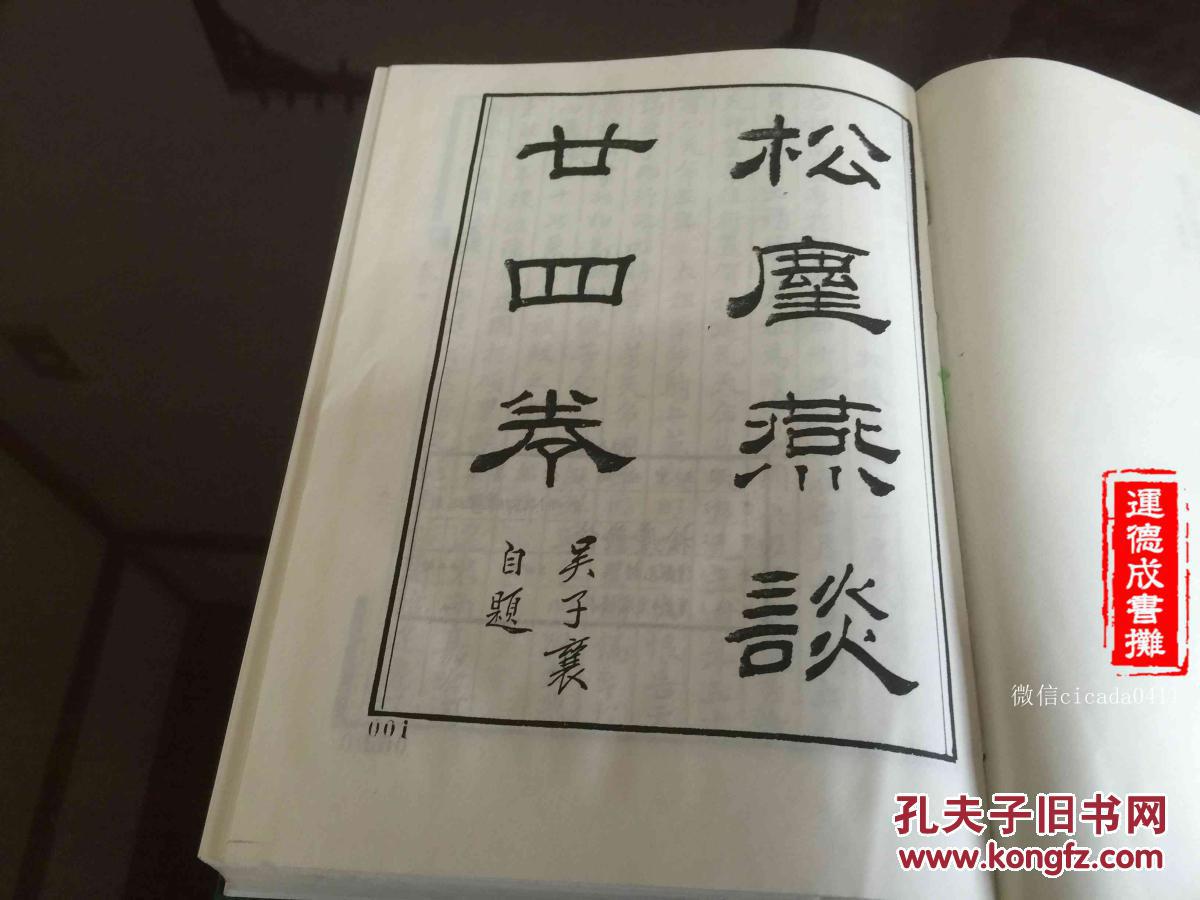 松塵燕談
廿四卷
吴子襄
自題
001
運德成書攤
微信cicada0411
孔夫子旧书网
www.kongfz.com